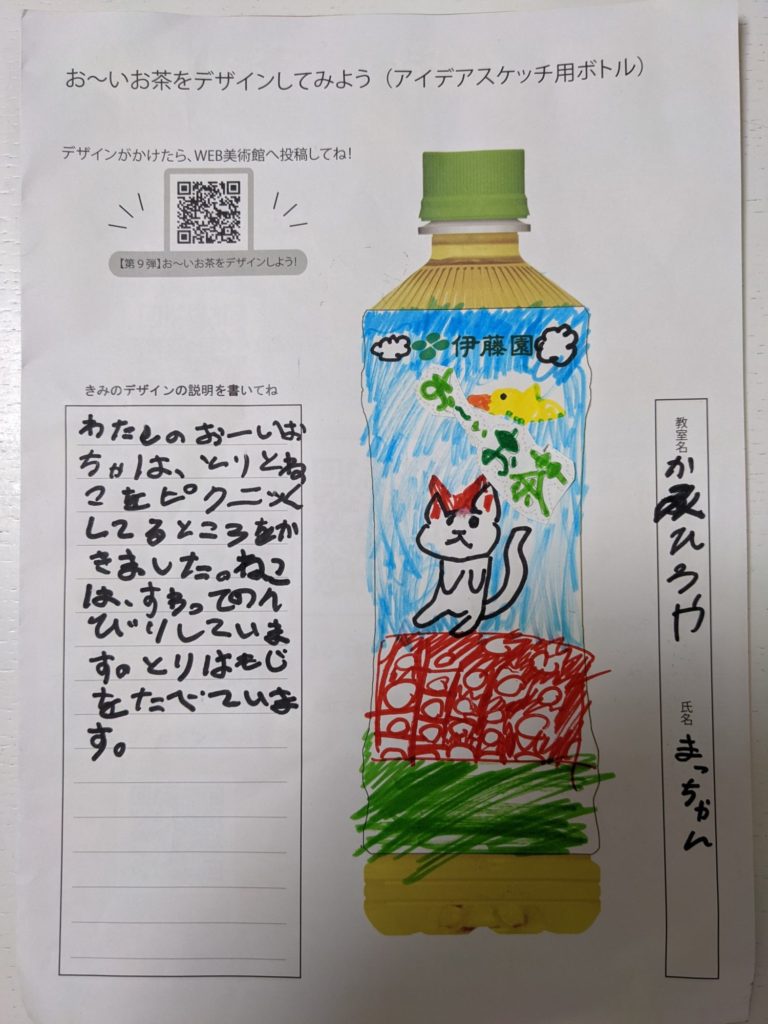 お〜いお茶をデザインしてみよう（アイデアスケッチ用ボトル）
デザインがかけたら、WEB美術館へ投稿してね！
【第９弾】お〜いお茶をデザインしよう！
きみのデザインの説明を書いてね
わたしのおーいお
ちゃは、とりとね
こをピクニック
してるところをか
きました。ねこ
は、すわってのん
びりしていま
す。とりはもじ
をたべていま
す。
伊藤園
お〜いお茶
教室名
ひろや
氏名
まっちゃん